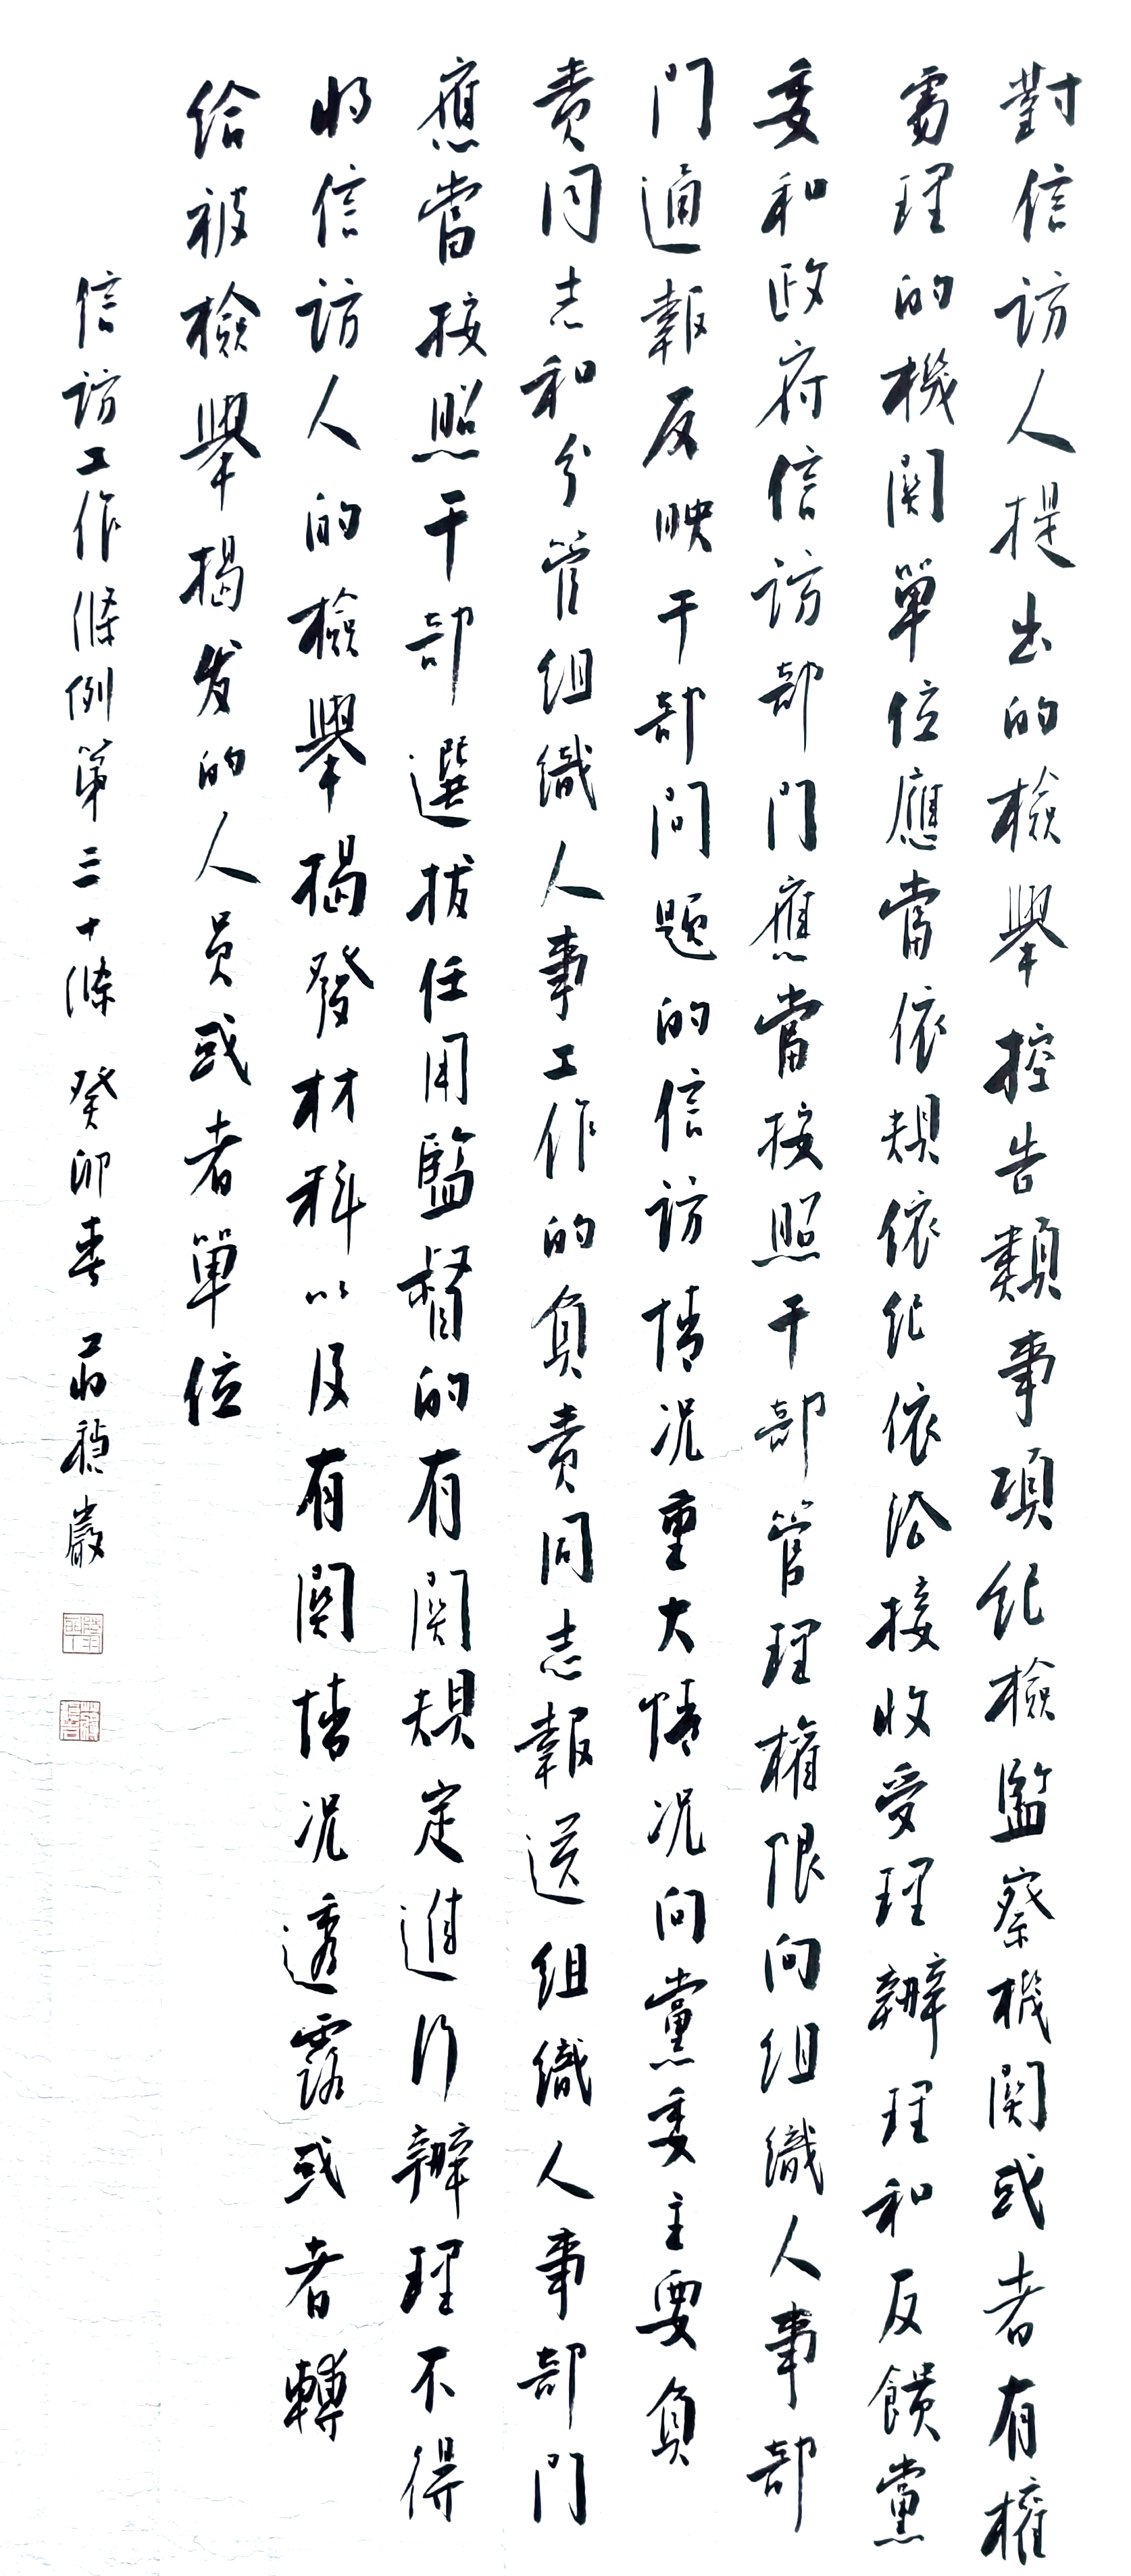 對信訪人提出的檢舉控告類事項紀檢監察機関或者有權
處理的機関單位應當依規依紀依法接收受理辦理和反饋黨
委和政府信訪部門應當按照干部管理權限向組織人事部
門通報反映干部問題的信訪情况重大情况向黨委主要負
責同志和分管組織人事工作的負責同志報送組織人事部門
應當按照干部選拔任用監督的有関規定進行辦理不得
将信訪人的檢舉揭發材料以及有関情况透露或者轉
給被檢舉揭发的人員或者單位
信訪工作條例第三十條 癸卯春 巖